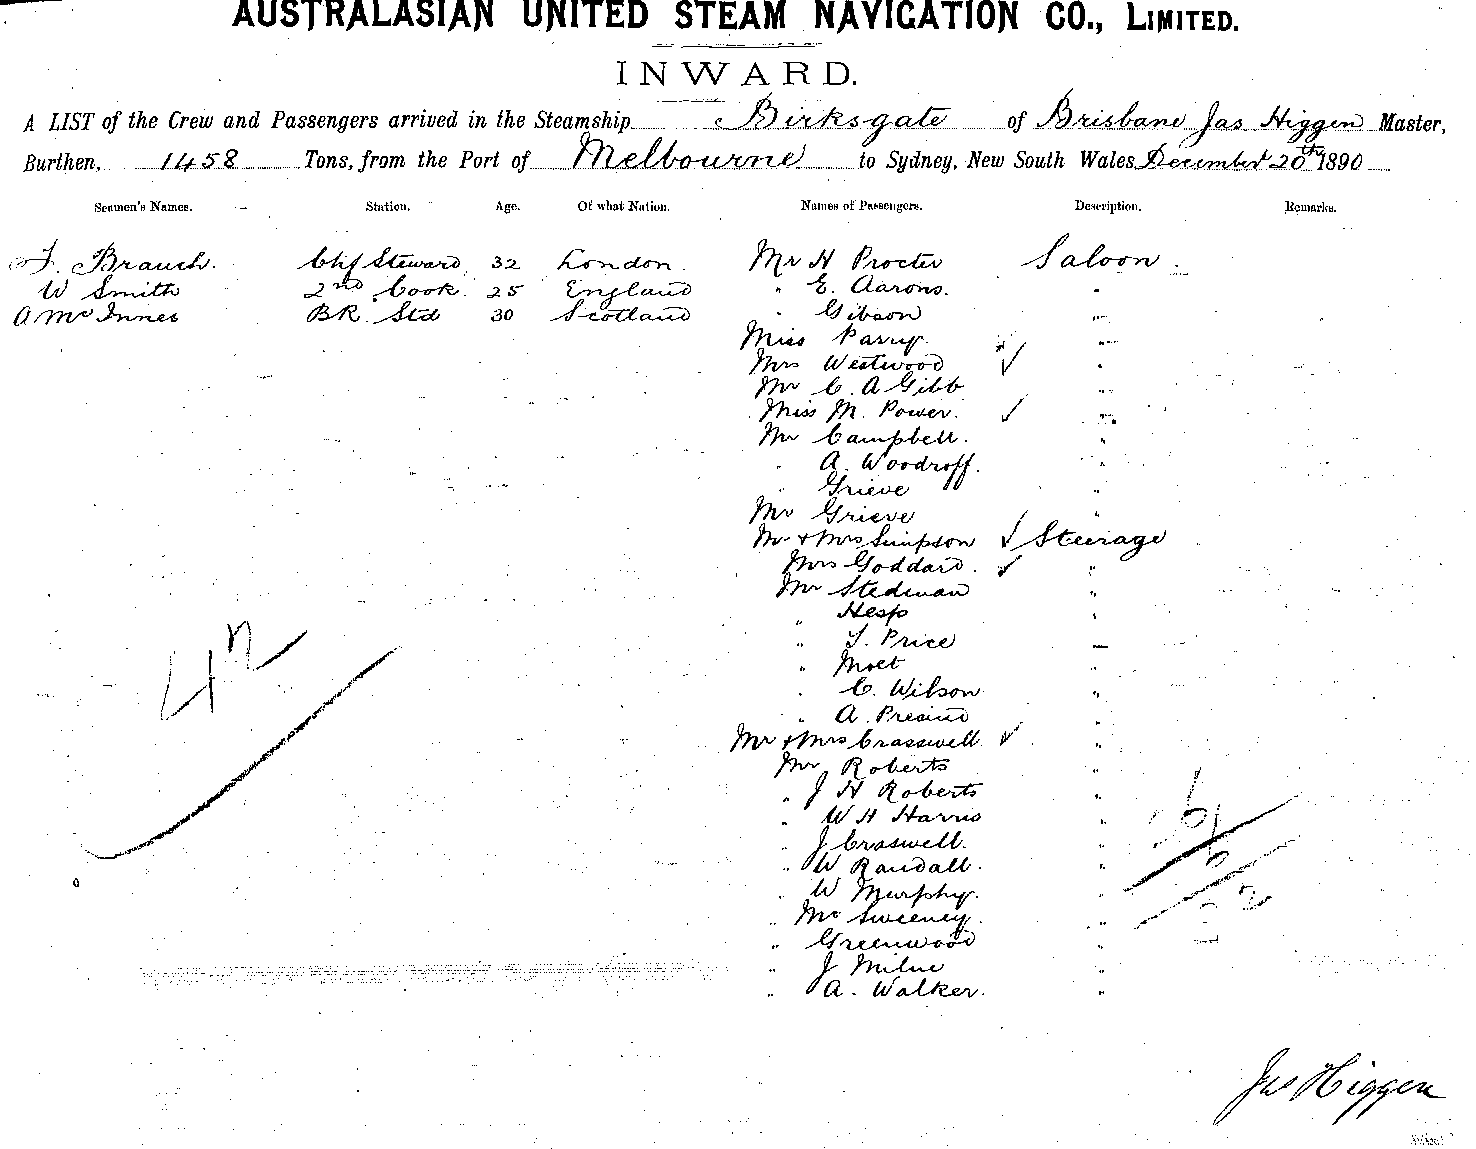 AUSTRALASIAN UNITED STEAM NAVIGATION CO., LIMITED.
INWARD.
A LIST of the Crew and Passengers arrived in the Steamship Birksgate of Brisbane Jas Higgen Master,
Burthen, 1458 Tons, from the Port of Melbourne to Sydney, New South Wales December 20th 1890
Seamen's Names. Station. Age. Of what Nation. Names of Passengers. Description. Remarks.
F. Brauch. Chf Steward 32 London. Mr H Procter Saloon.
W Smith 2nd Cook. 25 England " E. Aarons. "
A McInnes BR. Std 30 Scotland " Gibson "
Miss Parry. "
Mrs Westwood ✓ "
Mr C. A Gibb "
Miss M. Power. ✓ "
Mr Campbell. "
" A. Woodroff. "
" Grieve "
Mr Grieve "
Mr + Mrs Simpson ✓ Steerage
Mrs Goddard. ✓ "
Mr Stedman "
" Hesp "
" T. Price "
" Moet "
" C. Wilson "
" A. "
Mr + Mrs Crasswell ✓ "
Mr Roberts "
" J H Roberts "
" W H Harris "
" J Craswell. "
" W Randall. "
" W Murphy. "
" McSweeney. "
" Greenwood "
" J Milne "
" A. Walker. "
Jas Higgen